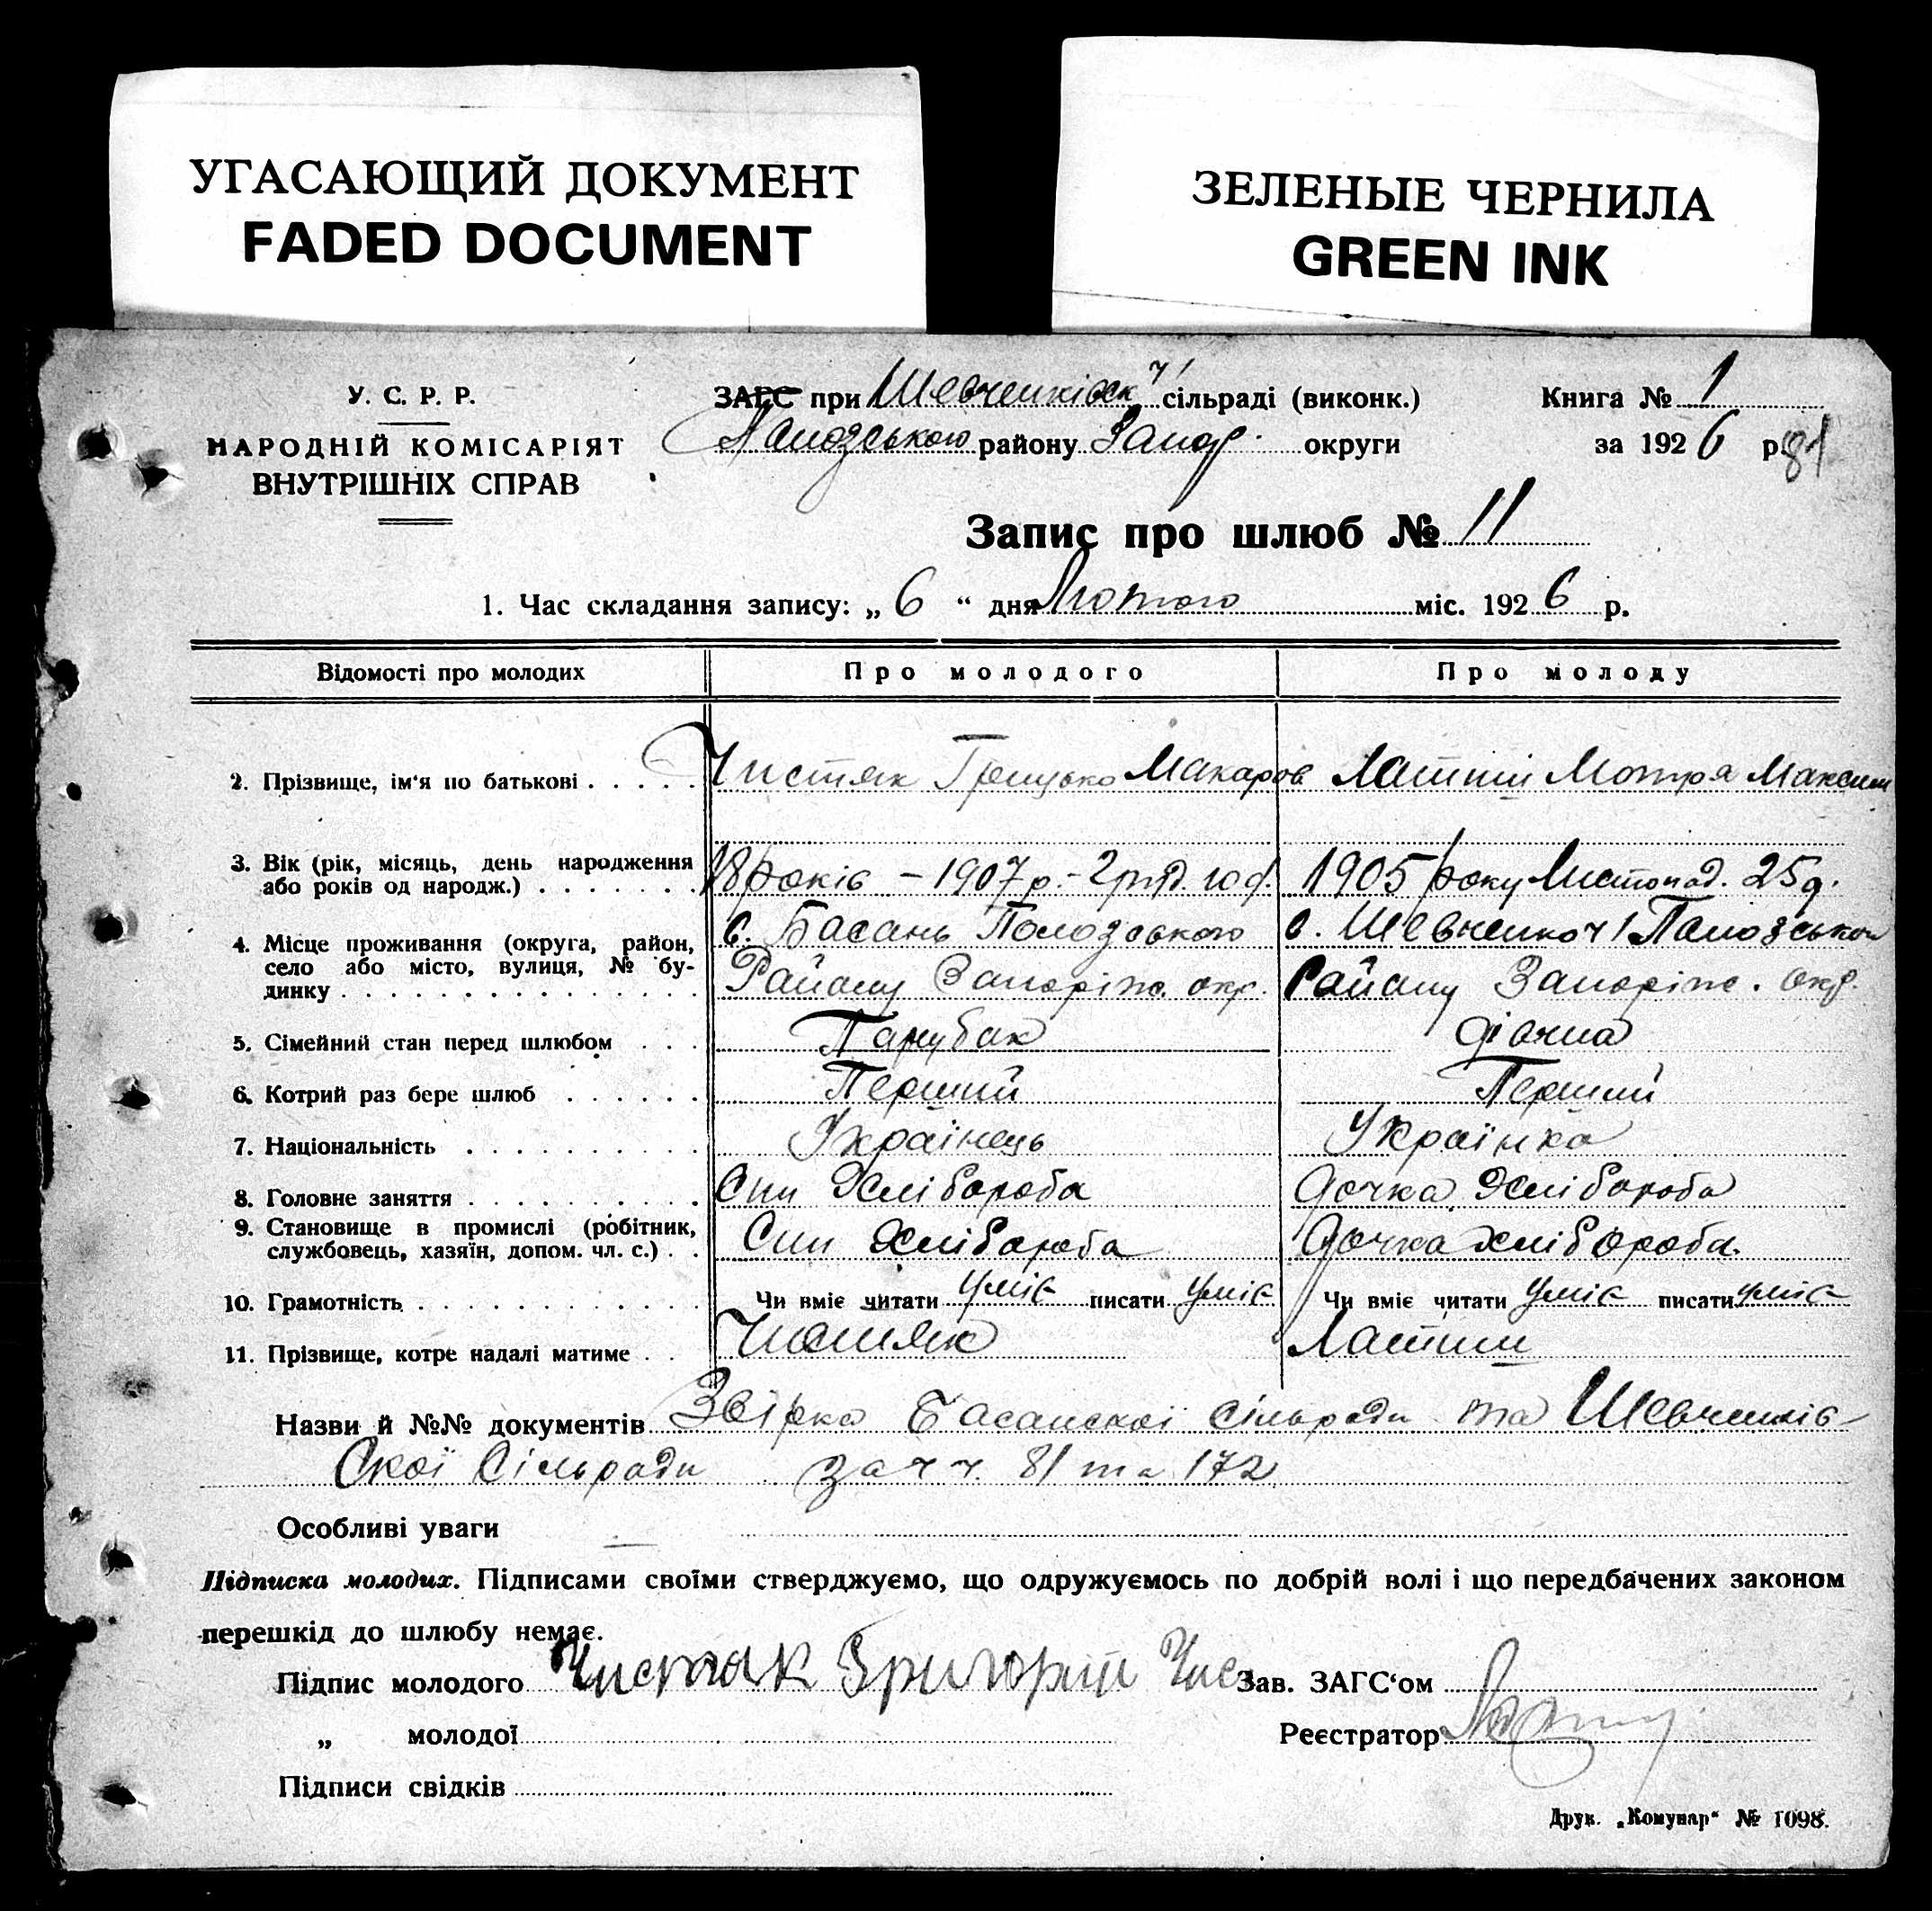 УГАСАЮЩИЙ ДОКУМЕНТ
FADED DOCUMENT
ЗЕЛЕНЫЕ ЧЕРНИЛА
GREEN INK
У. С. Р. Р.
НАРОДНІЙ КОМІСАРІЯТ
ВНУТРІШНІХ СПРАВ
ЗАГС при Шевченківськ ч1 сільраді (виконк.)
Полозського району Запор. округи
Книга № 1
за 1926 р. 81
Запис про шлюб № 11
1. Час складання запису: „ 6 “ дня Лютого міс. 1926 р.
Відомості про молодих Про молодого Про молоду
2. Прізвище, ім'я по батькові Чистяк Грицько Макаров Мотря Максим
3. Вік (рік, місяць, день народження
або років од народж.) 18 років – 1907 р. 1905 року Листопад. 25 д.
4. Місце проживання (округа, район,
село або місто, вулиця, № бу-
динку
с. Басань Полозського
Району Запоріж. окр.
с. Шевченко ч1 Полозського
Району Запоріж. окр.
5. Сімейний стан перед шлюбом Парубак дівчина
6. Котрий раз бере шлюб Перший Перший
7. Національність Українець Українка
8. Головне заняття Син Хлібороба Дочка Хлібороба
9. Становище в промислі (робітник,
службовець, хазяїн, допом. чл. с.) Син Хлібороба Дочка хлібороба.
10. Грамотність Чи вміє читати уміє писати уміє Чи вміє читати уміє писати уміє
11. Прізвище, котре надалі матиме Чистяк
Назви й №№ документів Басанської сільради та Шевченків-
ської Сільради за чч. 81 та 172
Особливі уваги —
Підписка молодих. Підписами своїми стверджуємо, що одружуємось по добрій волі і що передбачених законом
перешкід до шлюбу немає.
Підпис молодого Чистяк Григорій Чис Зав. ЗАГС'ом
„ молодої Реєстратор
Підписи свідків
Друк. „Комунар“ № 1098.